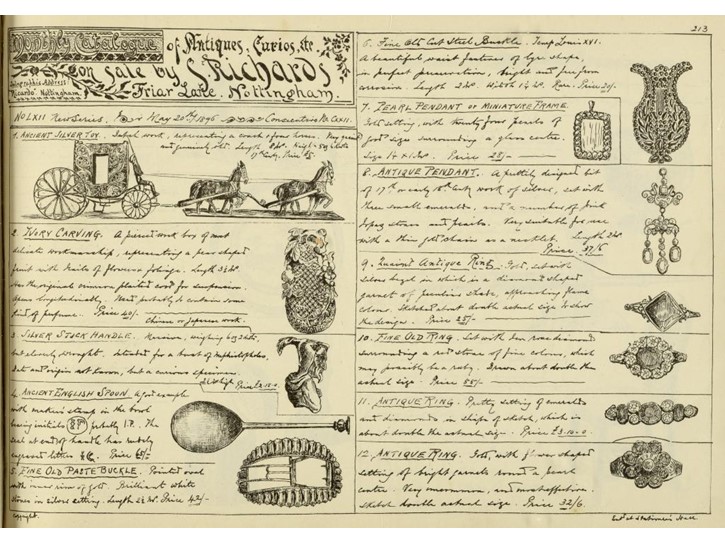 Monthly Catalogue of Antiques, Curios, etc.
on sale by S. Richards
Telegraphic Address:
"Ricardo" Nottingham.
Friar Lane, Nottingham.
213
No LXII New Series. May 20th/1896 Consecutive No CXII.
1. ANCIENT SILVER TOY. Superb work, representing a coach & four horses. Very grand
and genuinely old. Length Height
17th Centy. Price
2. IVORY CARVING. A pierced work box of most
delicate workmanship, representing a pear shaped
fruit with trails of flowers & foliage. Length 3¼ in.
Has the original crimson plaited cord for suspension
opens longitudinally. Used probably to contains some
kind of perfume. Price 40/-
Chinese or Japanese work.
3. SILVER STICK HANDLE. Massive, weighing
but cleverly wrought. Intended for a bust of Mephistopheles.
Date and origin not known, but a curious specimen.
high. Price £2.10.0
4. ANCIENT ENGLISH SPOON. A good example
with maker's stamp in the bowl
having initials probably I.P. The
seal at end of handle has rudely
engraved letters Price 65/-
5. FINE OLD PASTE BUCKLE. Pointed oval
with inner rim of gold. Brilliant white
stones in silver setting. Length 2½ in. Price 42/-
Copyright.
6. Fine Old Cut Steel Buckle. Temp Louis XVI.
A beautiful waist fastener of lyre shape,
in perfect preservation, bright and free from
corrosion. Length 3 in. Width 1¾ in. Rare. Price 20/-
7. PEARL PENDANT OR MINIATURE FRAME.
Gold setting, with twenty four pearls of
good sizes surrounding a glass centre.
Size 1¼ x 1 in. Price 25/-
8. ANTIQUE PENDANT. A prettily designed bit
of 17th or early 18th Centy work of silver, set with
three small emeralds, and a number of pink
topaz stones and pearls. Very suitable for use
with a thin gold chain as a necklet. Length 2 in.
Price 37/6
9. Quaint Antique Ring. Gold, set with
silver bezel in which is a diamond shaped
garnet of peculiar shade, approaching flame
colour. Sketched about double actual size to show
the design. Price 25/-
10. FINE OLD RING. Set with ten rose diamonds
surrounding a red stone of fine colour, which
may possibly be a ruby. Drawn about double the
actual size. Price 55/-
11. ANTIQUE RING. Pretty setting of emeralds
and diamonds in shape of sketch, which is
about double the actual size. Price £3.10.0
12. ANTIQUE RING. Gold, with flower shaped
setting of bright garnets round a pearl
centre. Very uncommon, and most effective.
Sketch double actual size. Price 32/6
Entd at Stationers Hall